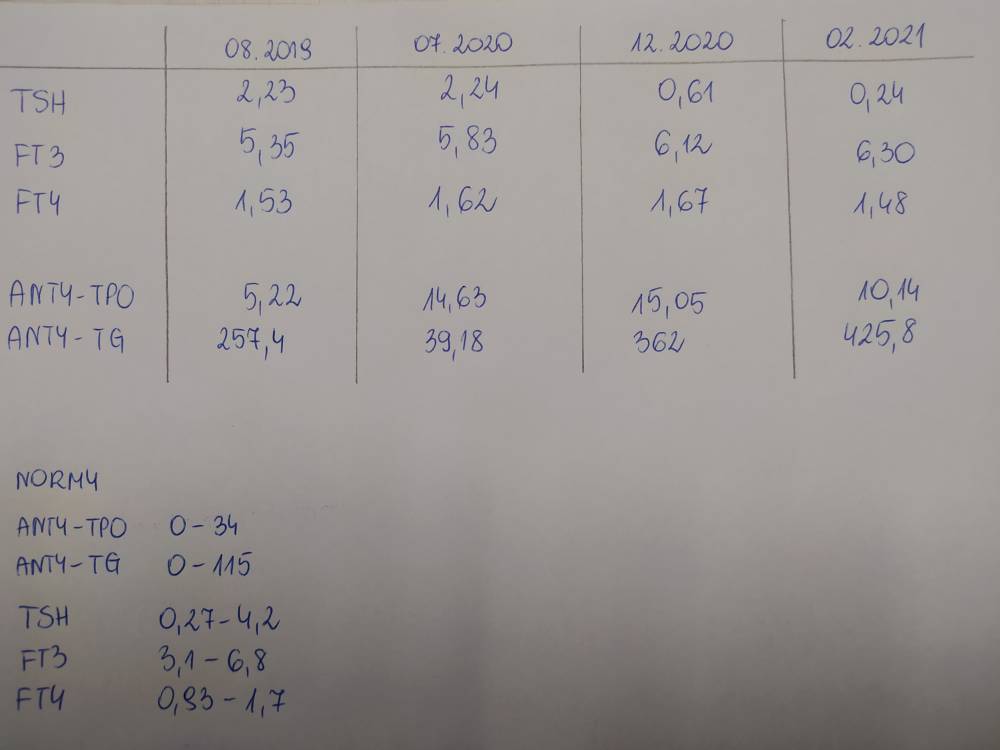 08.2019 07.2020 12.2020 02.2021
TSH 2,23 2,24 0,61 0,24
FT3 5,35 5,83 6,12 6,30
FT4 1,53 1,62 1,67 1,48
ANTY-TPO 5,22 14,63 15,05 10,14
ANTY-TG 257,4 39,18 362 425,8
NORMY
ANTY-TPO 0-34
ANTY-TG 0-115
TSH 0,27-4,2
FT3 3,1-6,8
FT4 0,93-1,7